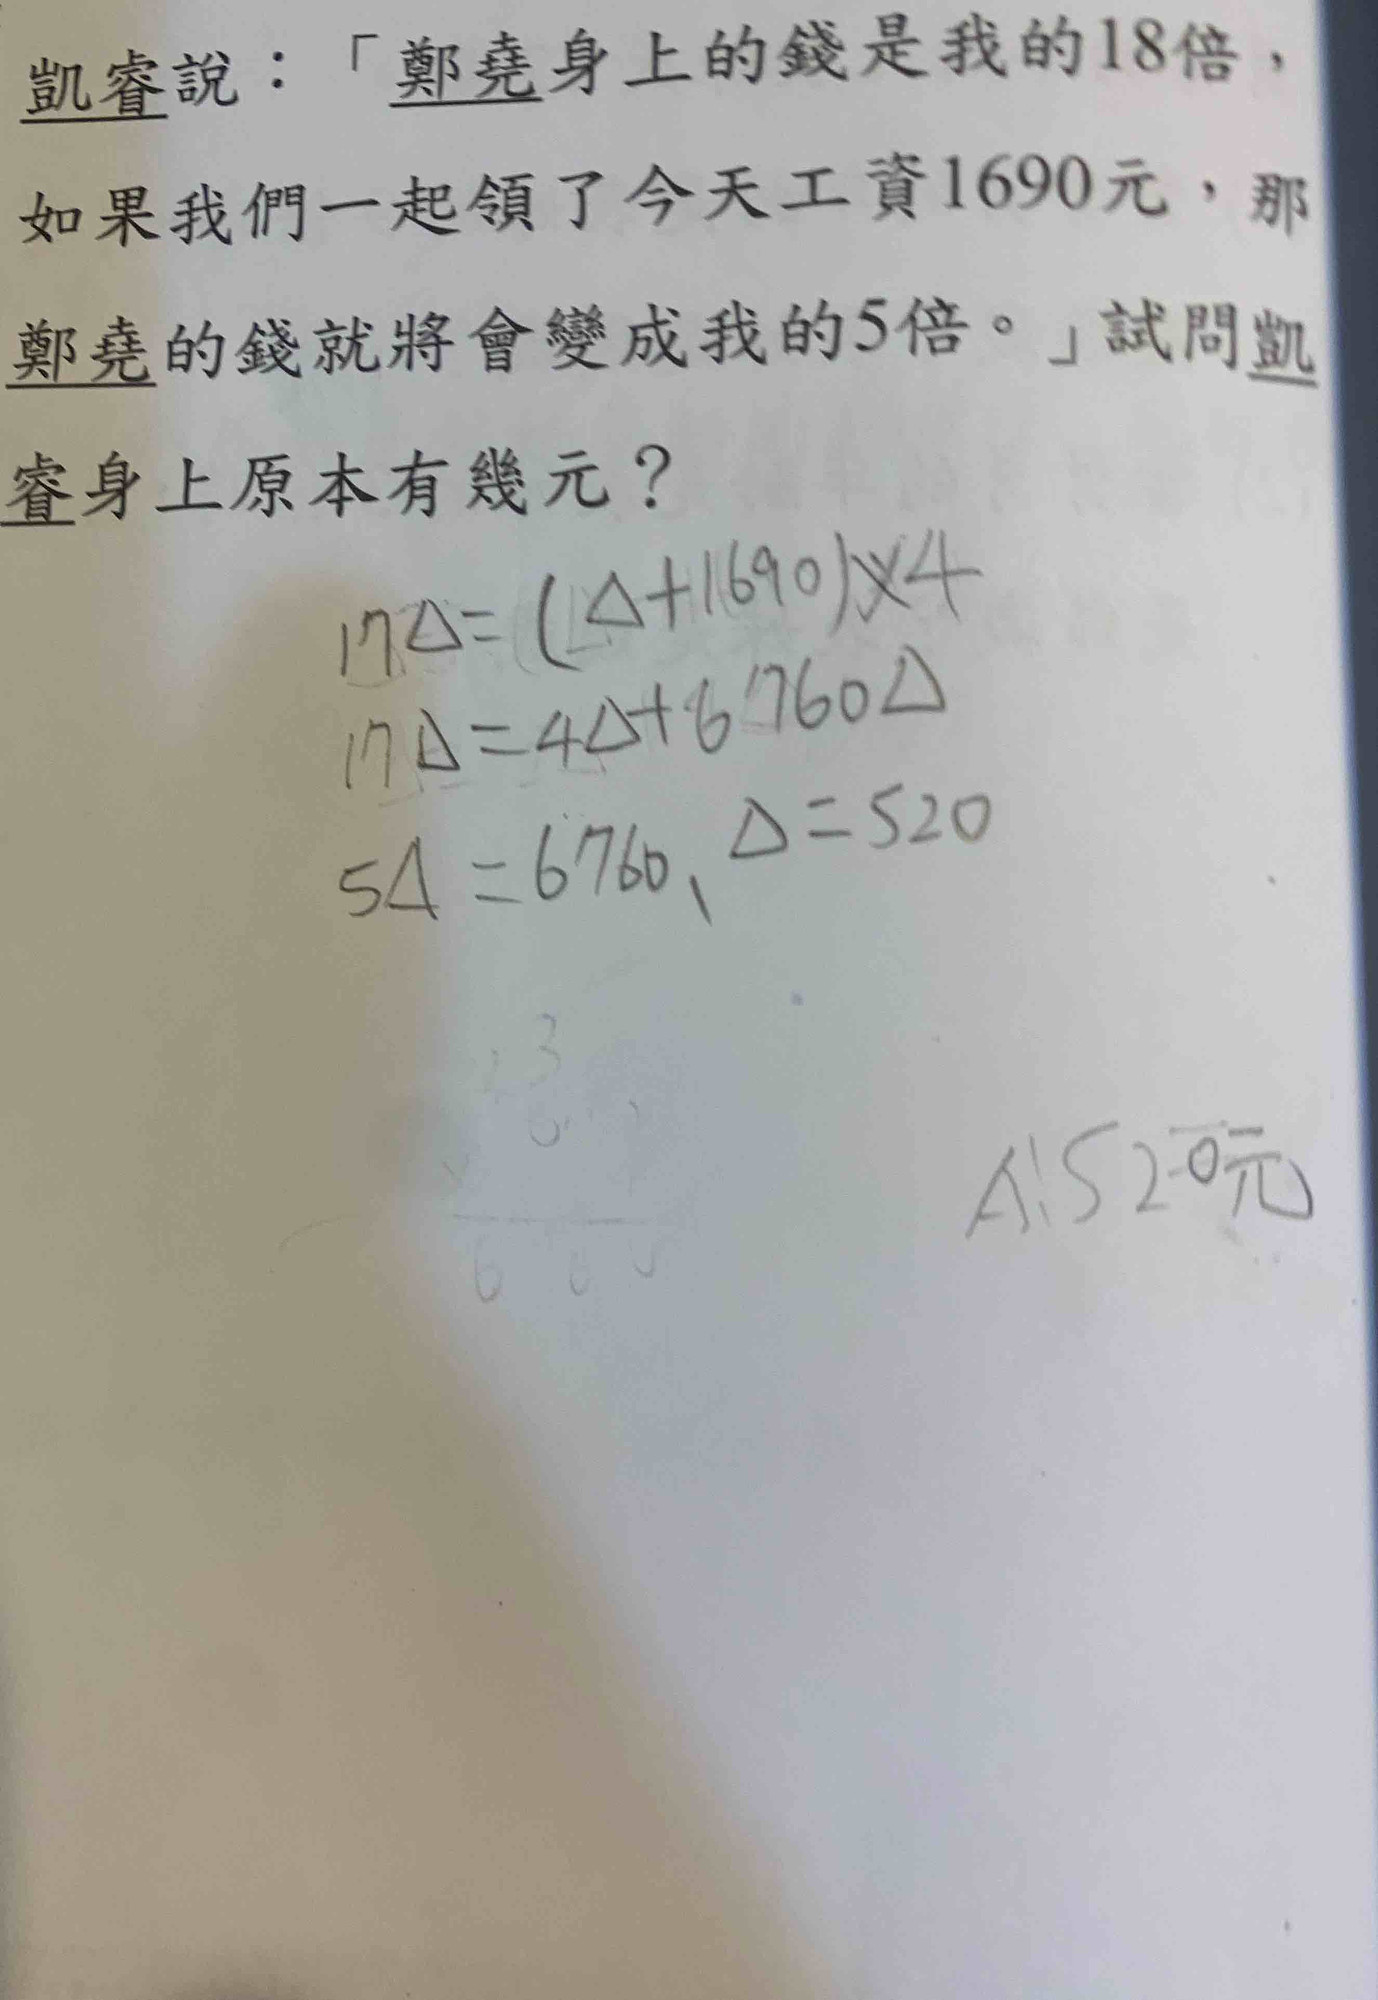 凱睿說：「鄭堯身上的錢是我的18倍，
如果我們一起領了今天工資1690元，那
鄭堯的錢就將會變成我的5倍。」試問凱
睿身上原本有幾元？
17△=(△+1690)×4
17△=4△+6760△
5△=6760、△=520
A:520元